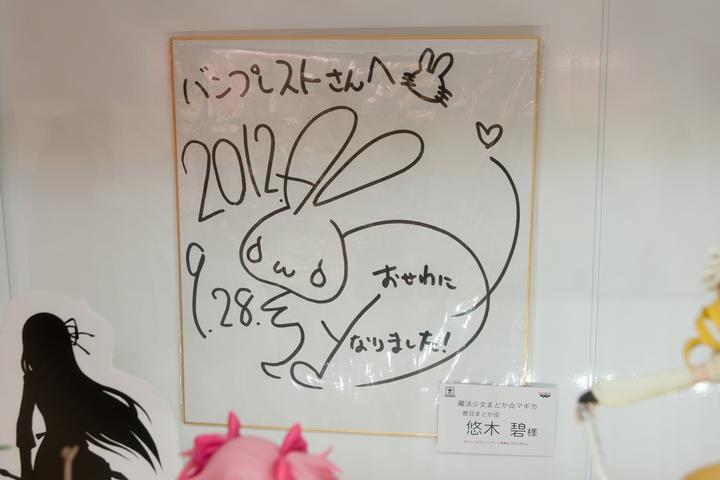 バンプレストさんへ
2012.
9.28.
おせわに
なりました!
魔法少女まどか☆マギカ
鹿目まどか役
悠木 碧様